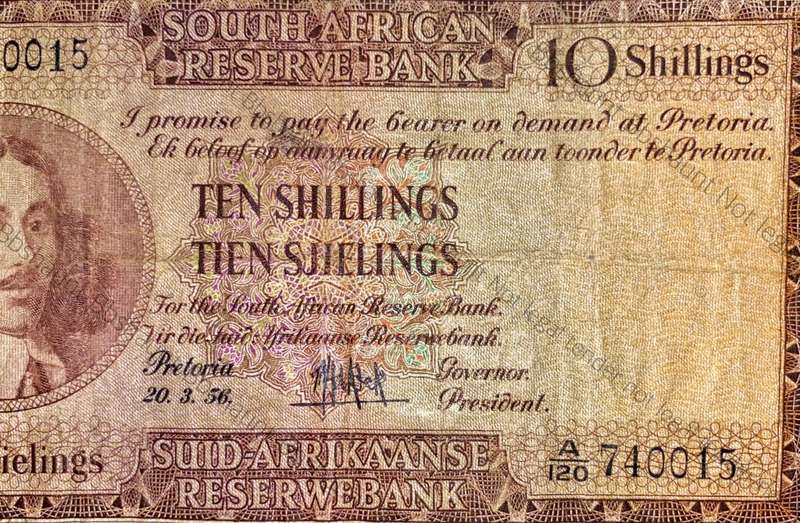 0015
SOUTH AFRICAN
RESERVE BANK
10 Shillings
I promise to pay the bearer on demand at Pretoria.
Ek beloof op aanvraag te betaal aan toonder te Pretoria.
TEN SHILLINGS
TIEN SJIELINGS
For the South African Reserve Bank.
Vir die Suid-Afrikaanse Reserwebank.
Pretoria
20. 3. 56.
Governor.
President.
ielings
SUID-AFRIKAANSE
RESERWEBANK
A/120 740015
Not legal tender